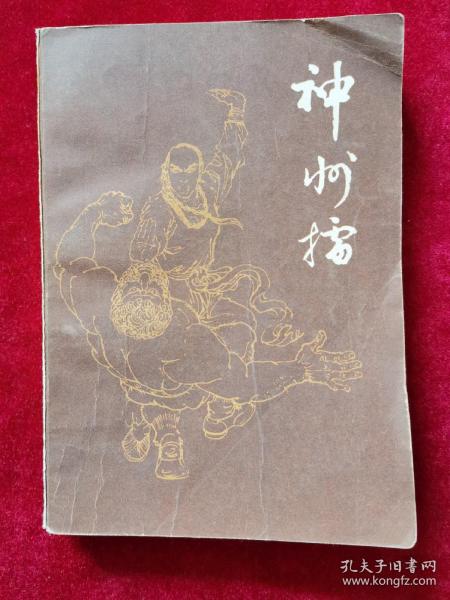 神州擂
孔夫子旧书网
www.kongfz.com